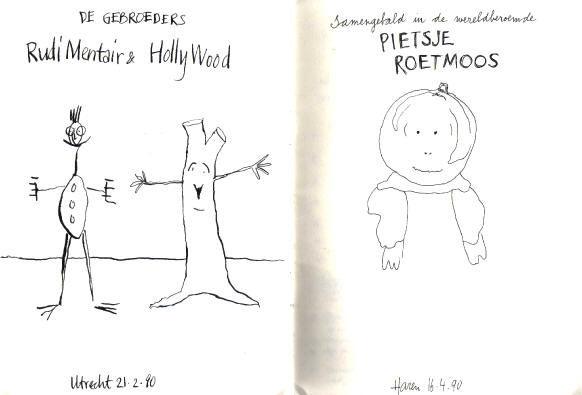 DE GEBROEDERS
Rudi Mentair & Holly Wood
Utrecht 21·2·90
Samengebald in de wereldberoemde
PIETSJE
ROETMOOS
Haren 16·4·90